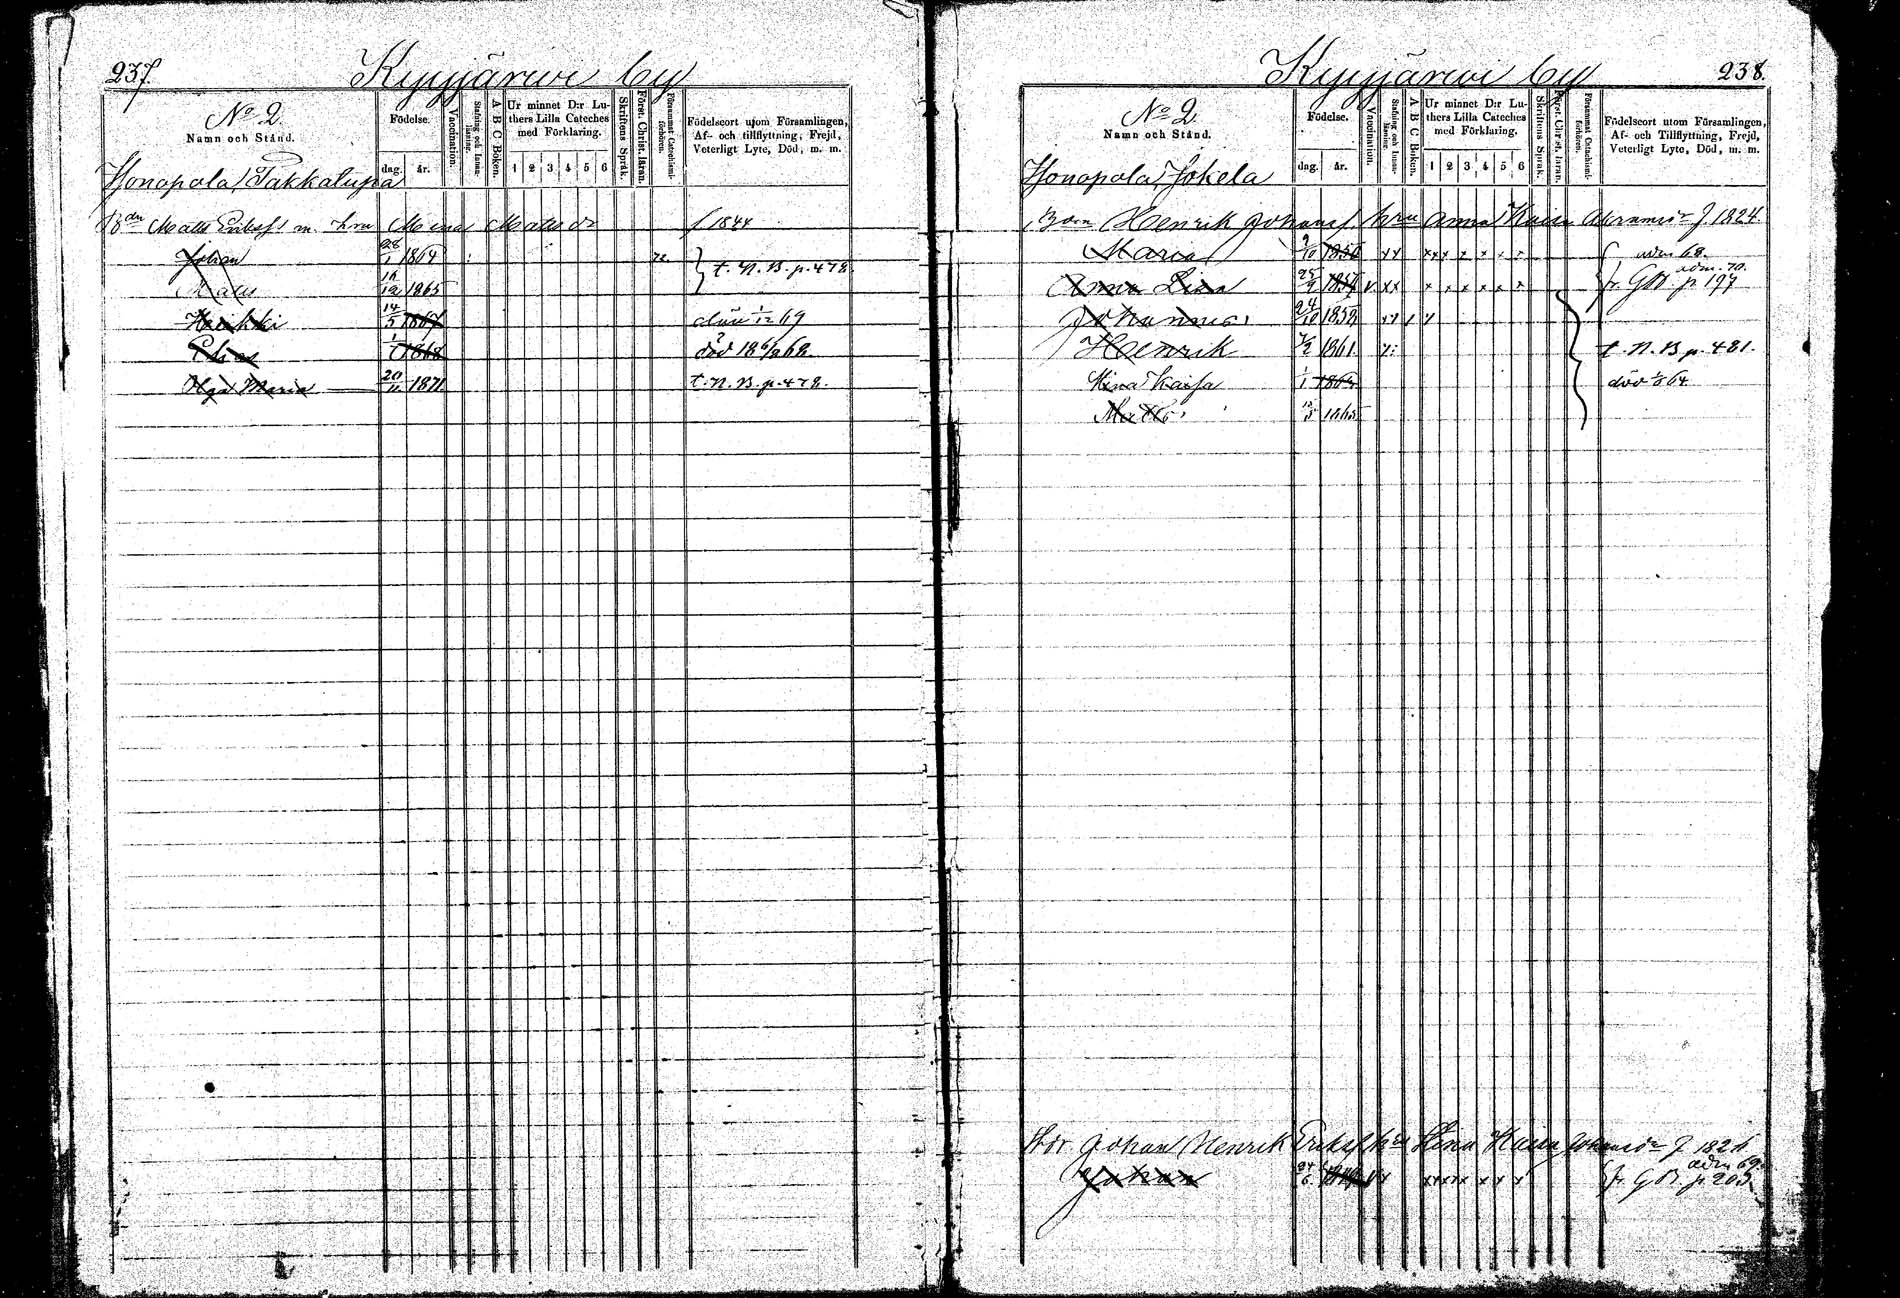 237.
Kyyjärvi by
No 2.
Namn och Stånd.
Födelse.
dag. år.
Vaccination.
Stafning och Innanläsning.
A B C Boken.
Ur minnet D:r Luthers Lilla Cateches med Förklaring.
1 2 3 4 5 6
Skriftens Språk.
Först. Christ. läran.
Försummat Catechismiförhören.
Födelseort utom Församlingen, Af- och tillflyttning, Frejd, Veterligt Lyte, Död, m. m.
Honopola / Takkalupa
Bdn Matts Eriksf m. hru Mina Mattsdr f 1844
Johan 28/1 1864
Matts 16/12 1865 t. N. B. p. 478.
Heikki 14/5 1867 död 1/12 69
Elias 1/7 1868 död 18 6/9 68.
Olga Maria 20/11 1871 t. N. B. p. 478.
Kyyjärvi by
238.
No 2.
Namn och Stånd.
Födelse.
dag. år.
Vaccination.
Stafning och Innanläsning.
A B C Boken.
Ur minnet D:r Luthers Lilla Cateches med Förklaring.
1 2 3 4 5 6
Skriftens Språk.
Först. Christ. läran.
Försummat Catechismiförhören.
Födelseort utom Församlingen, Af- och Tillflyttning, Frejd, Veterligt Lyte, Död, m. m.
Honopola, Jokela
Bden Henrik Johansf. hru Anna Kaisa f 1824
Maria 9/10 1850 xx xxx x x x x adm 68.
Anna Lisa 25/9 1854 v. xx x x x x x x adm. 70. fr. GB. p 197
Johannes 24/10 1858
Henrik 1861. t. N. B p. 481.
Mina Kaisa 1/1 1864 död 64
Matts 1865
Johan Henrik Eriksf hru Stina Kaisa f 1824
Johan adm 69. fr GB. p. 205